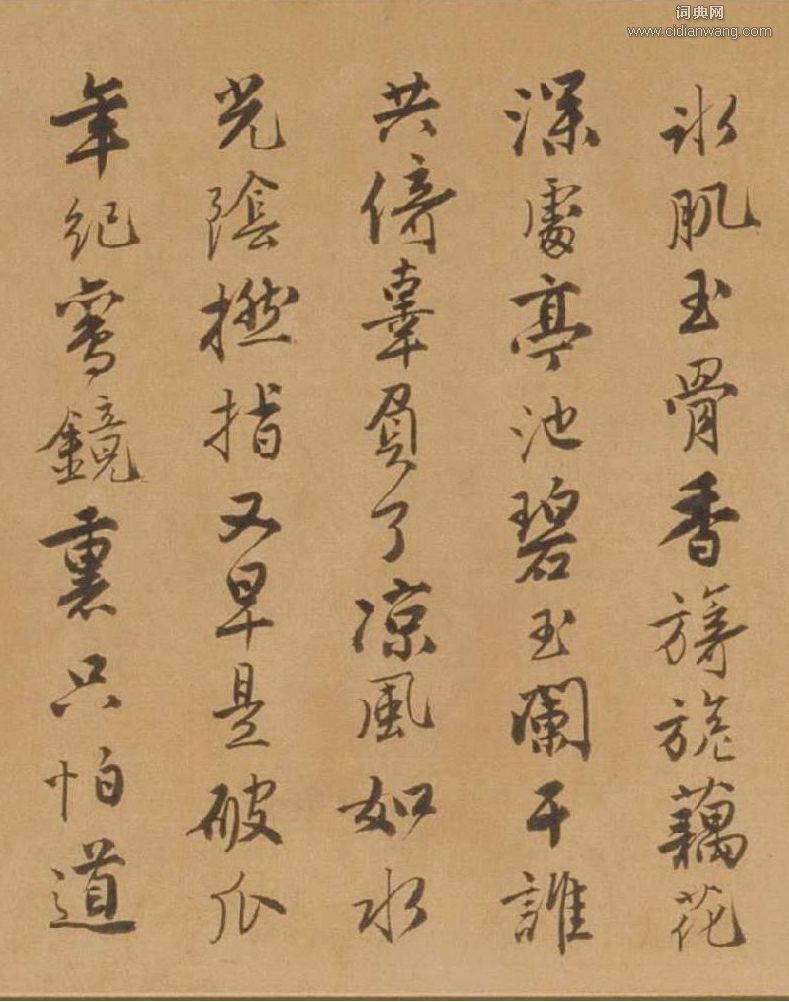 词典网
www.cidianwang.com
冰肌玉骨香旖旎藕花
深處亭池碧玉闌干誰
共倚辜負了凉風如水
光陰撚指又早是破瓜
年紀鸞鏡裏只怕道